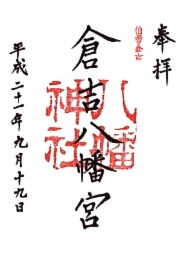 奉拝
伯耆倉吉
倉吉八幡宮
八幡
神社
平成二十一年九月十九日